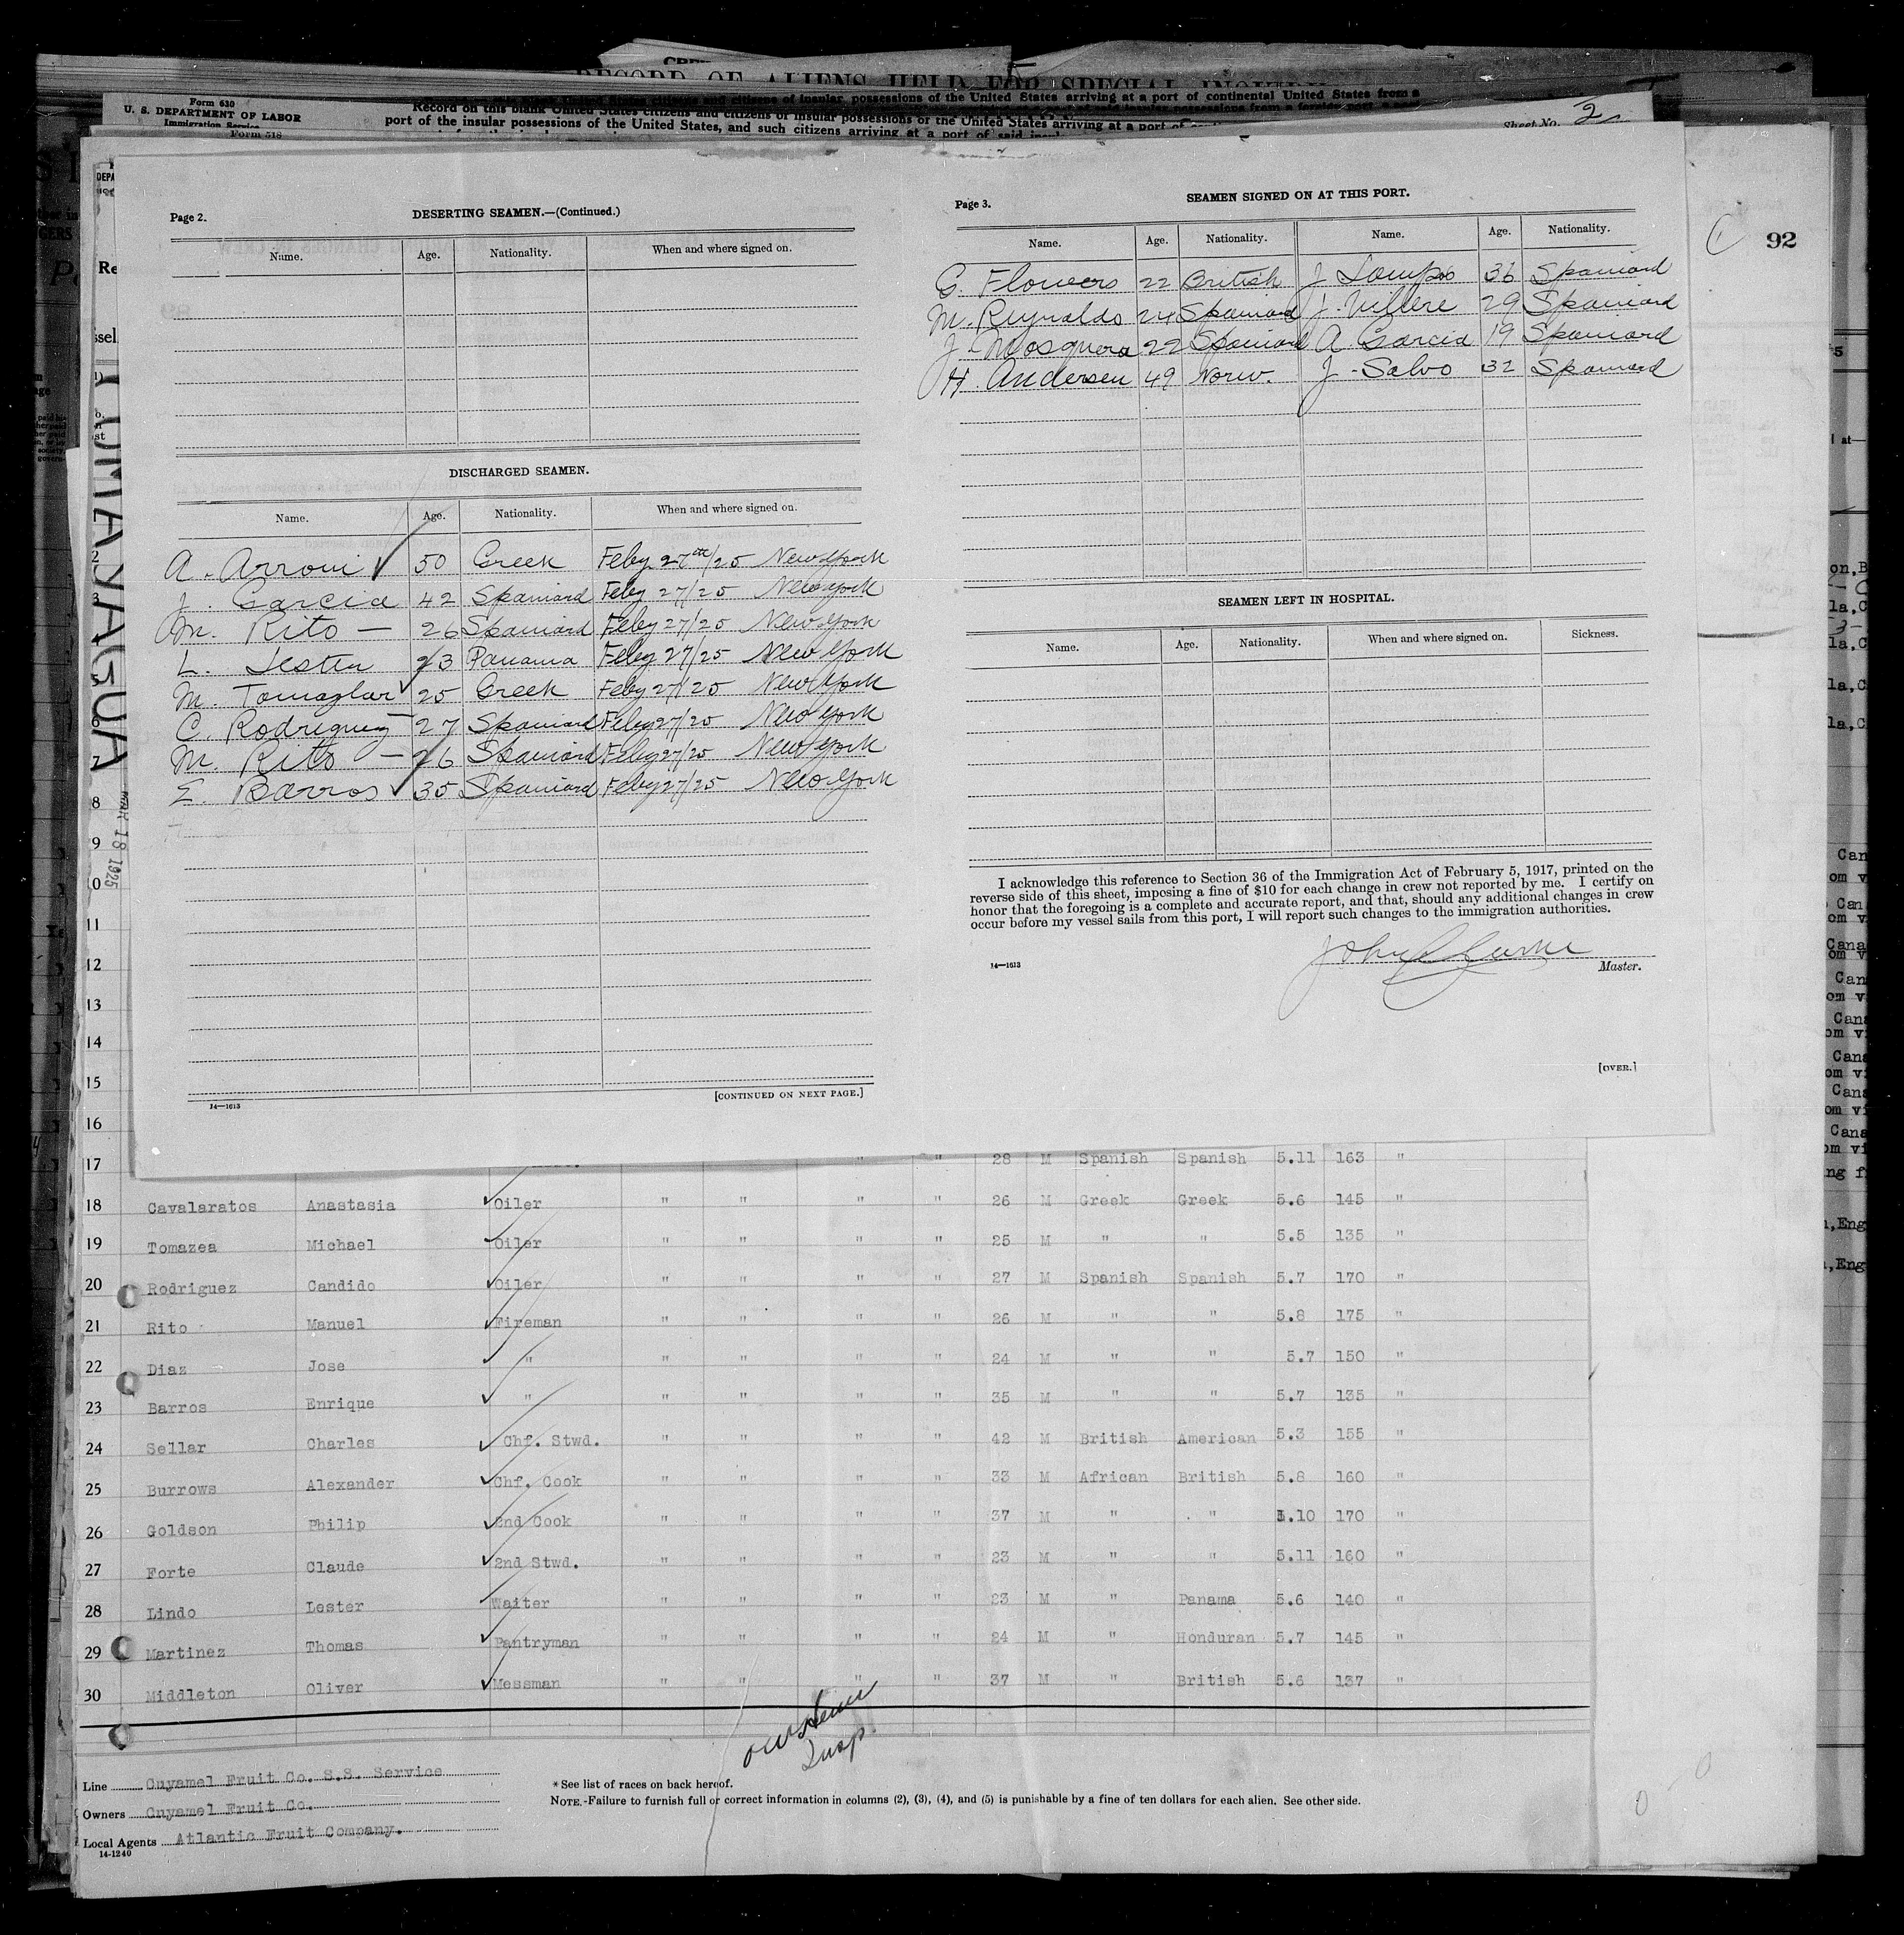 RECORD OF ALIENS HELD FOR SPECIAL INQUIRY
Form 630
U. S. DEPARTMENT OF LABOR
Immigration Service
Form 518
Record on this blank United States citizens and citizens of insular possessions of the United States arriving at a port of continental United States from a
port of the insular possessions of the United States, and such citizens arriving at a port of said
Sheet No. 2
92
Page 2.
DESERTING SEAMEN.—(Continued.)
Name. Age. Nationality. When and where signed on.
DISCHARGED SEAMEN.
Name. Age. Nationality. When and where signed on.
A. Arroni 50 Greek Feby 27th/25 New York
J. Garcia 42 Spaniard Feby 27/25 New York
M. Rito — 26 Spaniard Feby 27/25 New York
L. Lester 23 Panama Feby 27/25 New York
M. Tomazlar 25 Greek Feby 27/25 New York
C. Rodriguez 27 Spaniard Feby 27/25 New York
M. Rito — 26 Spaniard Feby 27/25 New York
E. Barros 35 Spaniard Feby 27/25 New York
14—1613
[CONTINUED ON NEXT PAGE.]
Page 3.
SEAMEN SIGNED ON AT THIS PORT.
Name. Age. Nationality. Name. Age. Nationality.
G. Flowers 22 British J 36 Spaniard
M. Reynaldo 24 Spaniard J. Villere 29 Spaniard
J. Mosquera 22 Spaniard A Garcia 19 Spaniard
H. Andersen 49 Norw. J. Salvo 32 Spaniard
SEAMEN LEFT IN HOSPITAL.
Name. Age. Nationality. When and where signed on. Sickness.
I acknowledge this reference to Section 36 of the Immigration Act of February 5, 1917, printed on the
reverse side of this sheet, imposing a fine of $10 for each change in crew not reported by me. I certify on
honor that the foregoing is a complete and accurate report, and that, should any additional changes in crew
occur before my vessel sails from this port, I will report such changes to the immigration authorities.
14—1613
Master.
[OVER.]
YAGUA
MAR 18 1925
8
9
10
11
12
13
14
15
16
17 " " 28 M Spanish Spanish 5.11 163 "
18 Cavalaratos Anastasia Oiler " " " " 26 M Greek Greek 5.6 145 "
19 Tomazea Michael Oiler " " " " 25 M " " 5.5 135 "
20 Rodriguez Candido Oiler " " " " 27 M Spanish Spanish 5.7 170 "
21 Rito Manuel Fireman " " " " 26 M " " 5.8 175 "
22 Diaz Jose " " " " " 24 M " " 5.7 150 "
23 Barros Enrique " " " " " 35 M " " 5.7 135 "
24 Sellar Charles Chf. Stwd. " " " " 42 M British American 5.3 155 "
25 Burrows Alexander Chf. Cook " " " " 33 M African British 5.8 160 "
26 Goldson Philip 2nd Cook " " " " 37 M " " 5.10 170 "
27 Forte Claude 2nd Stwd. " " " " 23 M " " 5.11 160 "
28 Lindo Lester Waiter " " " " 23 M " Panama 5.6 140 "
29 Martinez Thomas Pantryman " " " " 24 M " Honduran 5.7 145 "
30 Middleton Oliver Messman " " " " 37 M " British 5.6 137 "
Insp.
Line Cuyamel Fruit Co. S.S. Service
Owners Cuyamel Fruit Co.
Local Agents Atlantic Fruit Company.
14-1240
*See list of races on back hereof.
NOTE.-Failure to furnish full or correct information in columns (2), (3), (4), and (5) is punishable by a fine of ten dollars for each alien. See other side.